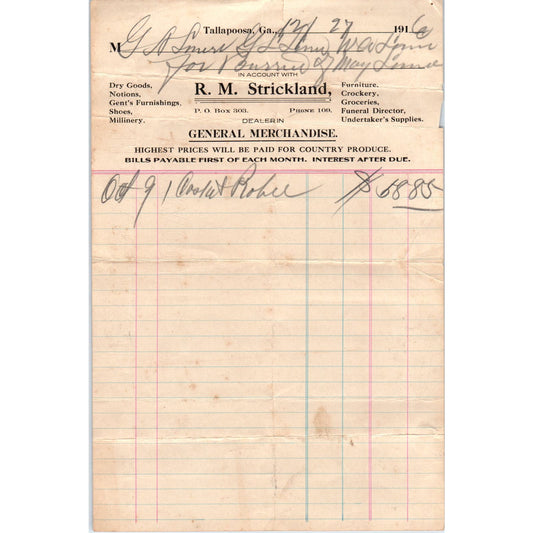 Tallapoosa, Ga., 12/27 1916
M G A
for of May
IN ACCOUNT WITH
R. M. Strickland,
P. O. BOX 303. PHONE 109.
DEALER IN
GENERAL MERCHANDISE.
Dry Goods,
Notions,
Gent's Furnishings,
Shoes,
Millinery.
Furniture.
Crockery,
Groceries,
Funeral Director,
Undertaker's Supplies.
HIGHEST PRICES WILL BE PAID FOR COUNTRY PRODUCE.
BILLS PAYABLE FIRST OF EACH MONTH. INTEREST AFTER DUE.
Oct 9 1 Casket & Robe $ 58.85